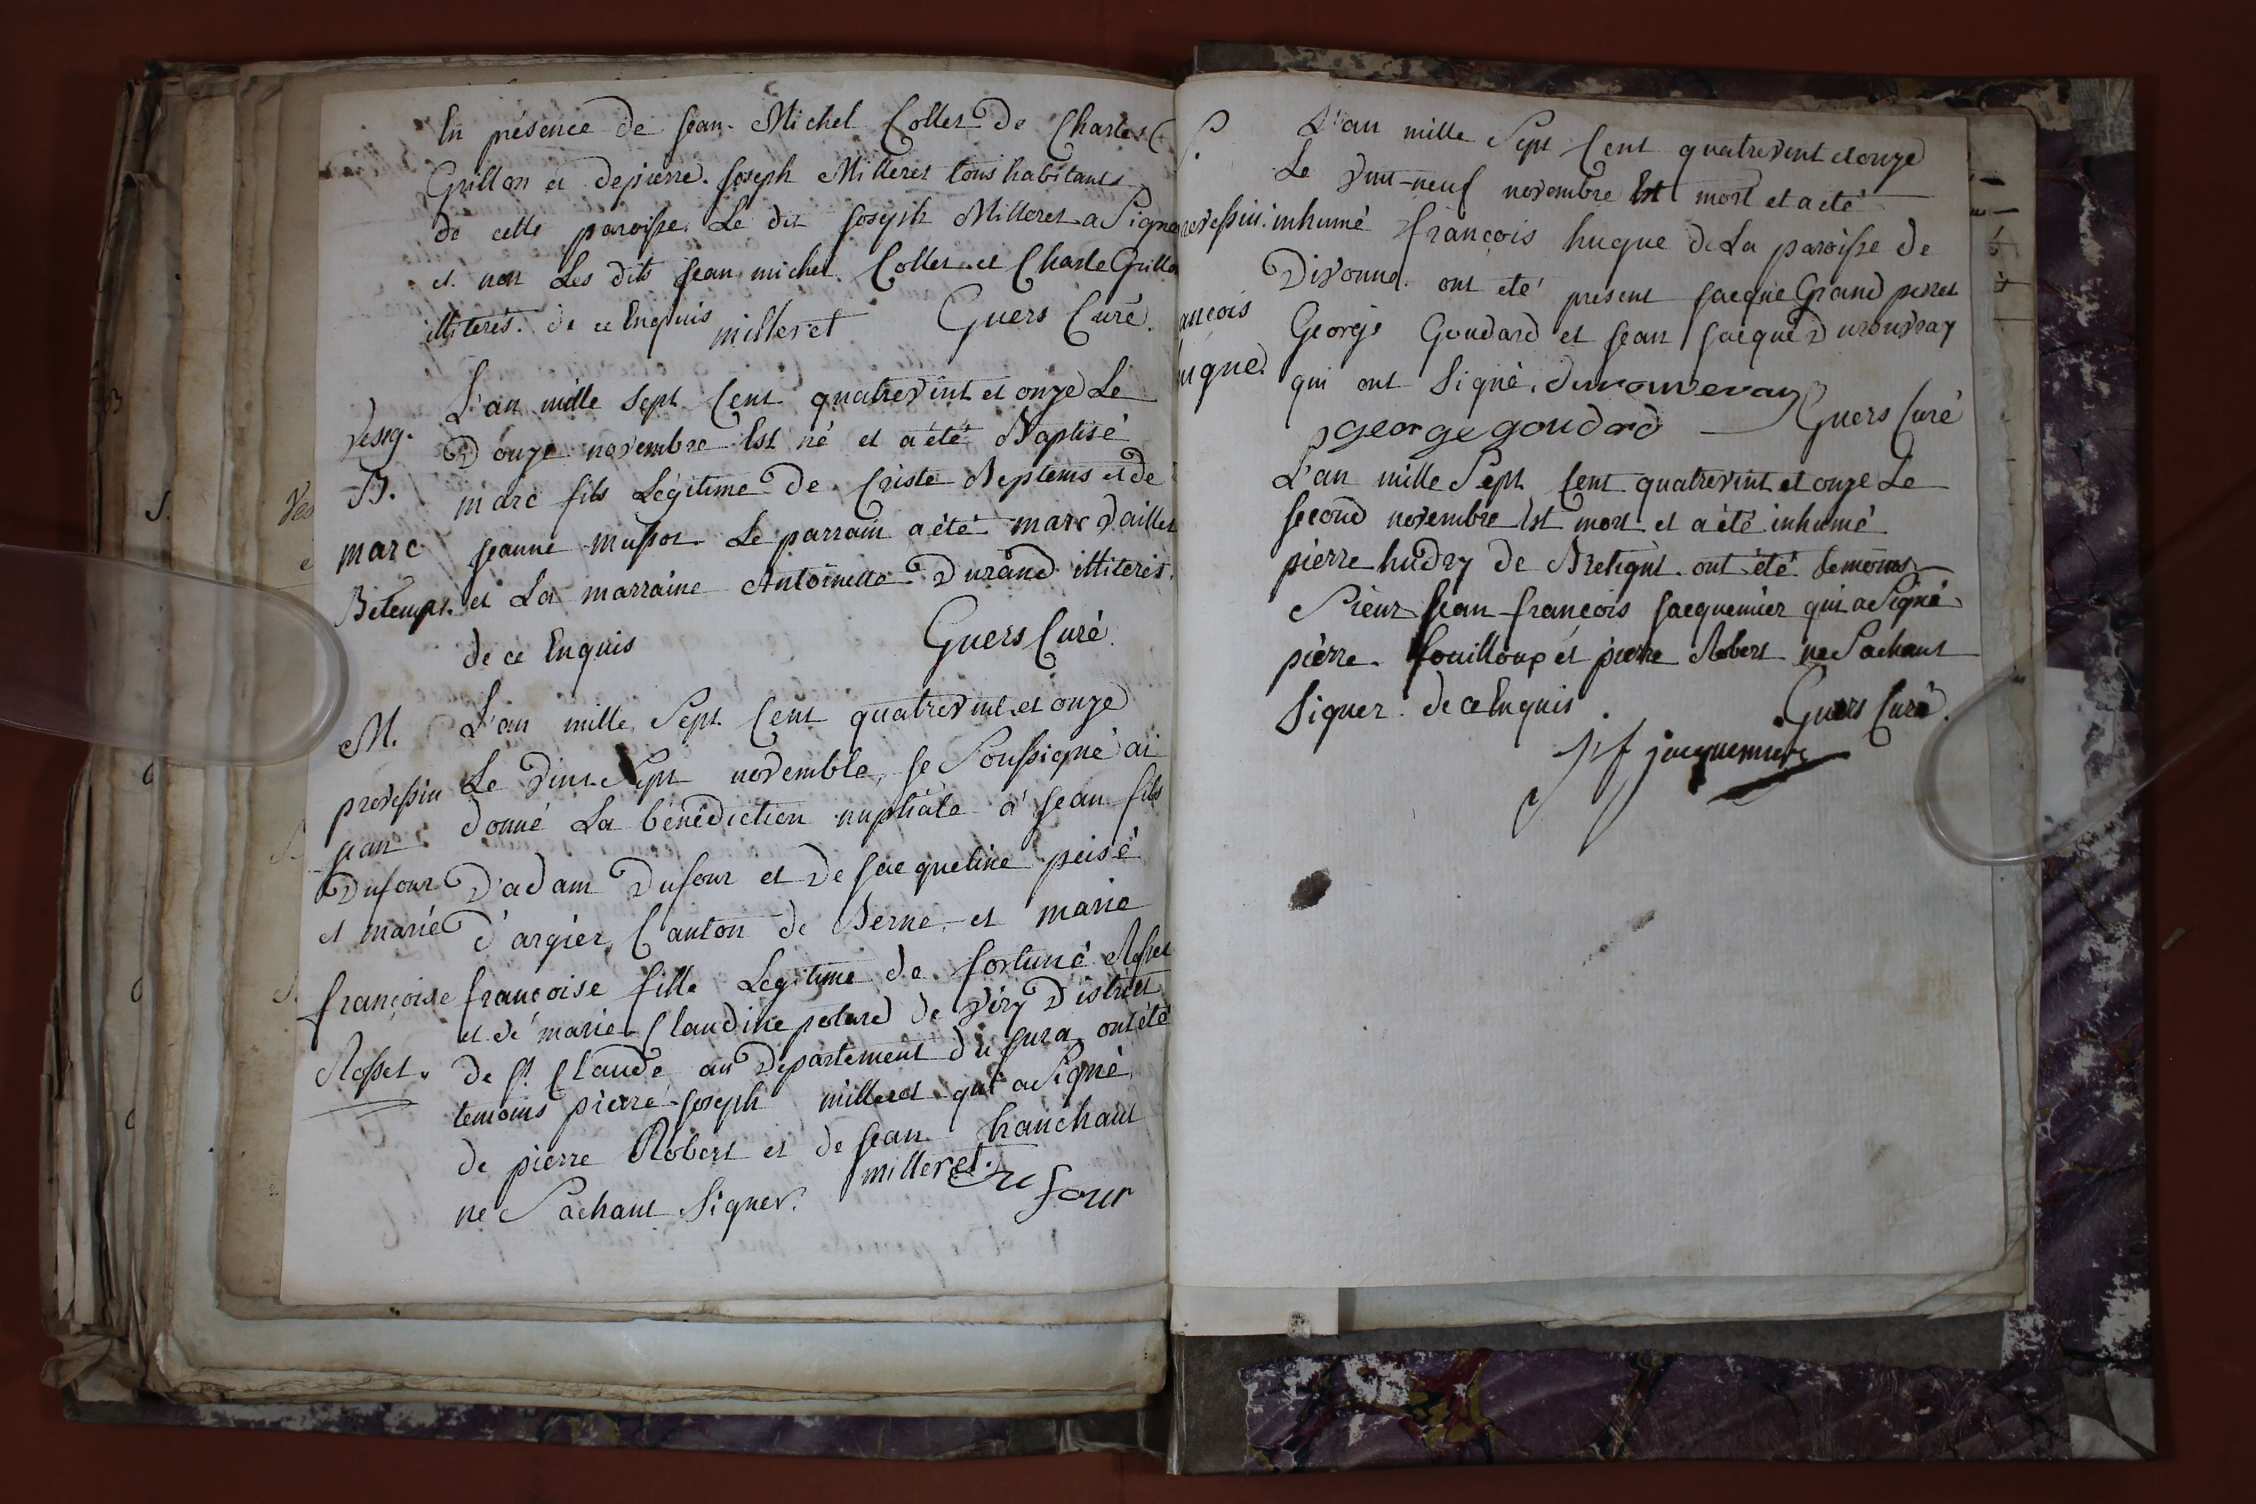 En présence de Jean-Michel Collet de Charles
Grillon et de pierre-Joseph Milleret tous habitants
de cette paroisse. Le dit Joseph Milleret a Signé
et non Les dits Jean michel Collet et Charle Grillon
illiterés. de ce Enquis
milleret Guers Curé.
Vesig.
B.
marc
Betemps.
L'an mille Sept Cent quatrevint et onze Le
Douze novembre Est né et a été Baptisé
marc fils Légitime De Criste Beptems et de
Jeanne mussot. Le parrain a été marc Vaillet
et La marraine Antoinette Durand illiterés.
de ce Enquis Guers Curé.
M.
prevessin
Jean
Dufour
et marie
françoise
Rosset.
L'an mille Sept Cent quatrevint et onze
Le Vint Sept novembre, Je Soussigné ai
donné La bénédiction nuptiale à Jean fils
D'adam Dufour et De Jacqueline
d'argier, Canton de Berne, et marie
francoise fille Légitime de fortuné Rosset
et de marie Claudine potard de Viry District
de St. Claude au Département du Jura ont été
temoins pierre-Joseph milleret qui a Signé
de pierre Robert et de Jean
ne Sachant Signer. milleret. Du four
S.
prevessin.
francois
huque.
L'an mille Sept Cent quatrevint et onze
Le Vint-neuf novembre Est mort et a été
inhumé François huque de La paroisse de
Divonne. ont été present Jacque Grand perret
George Goudard et Jean Jacque Durouvray
qui ont Signé. durouveray
george goudard Guers Curé
L'an mille Sept Cent quatrevint et onze Le
Second novembre Est mort et a été inhumé
pierre hudry de Bretigni. ont été temoins
Sieur Jean-françois Jacquemier qui a Signé
pierre fouilloux et pierre Robert ne Sachant
Signer. de ce Enquis Guers Curé.
jf jacquemier